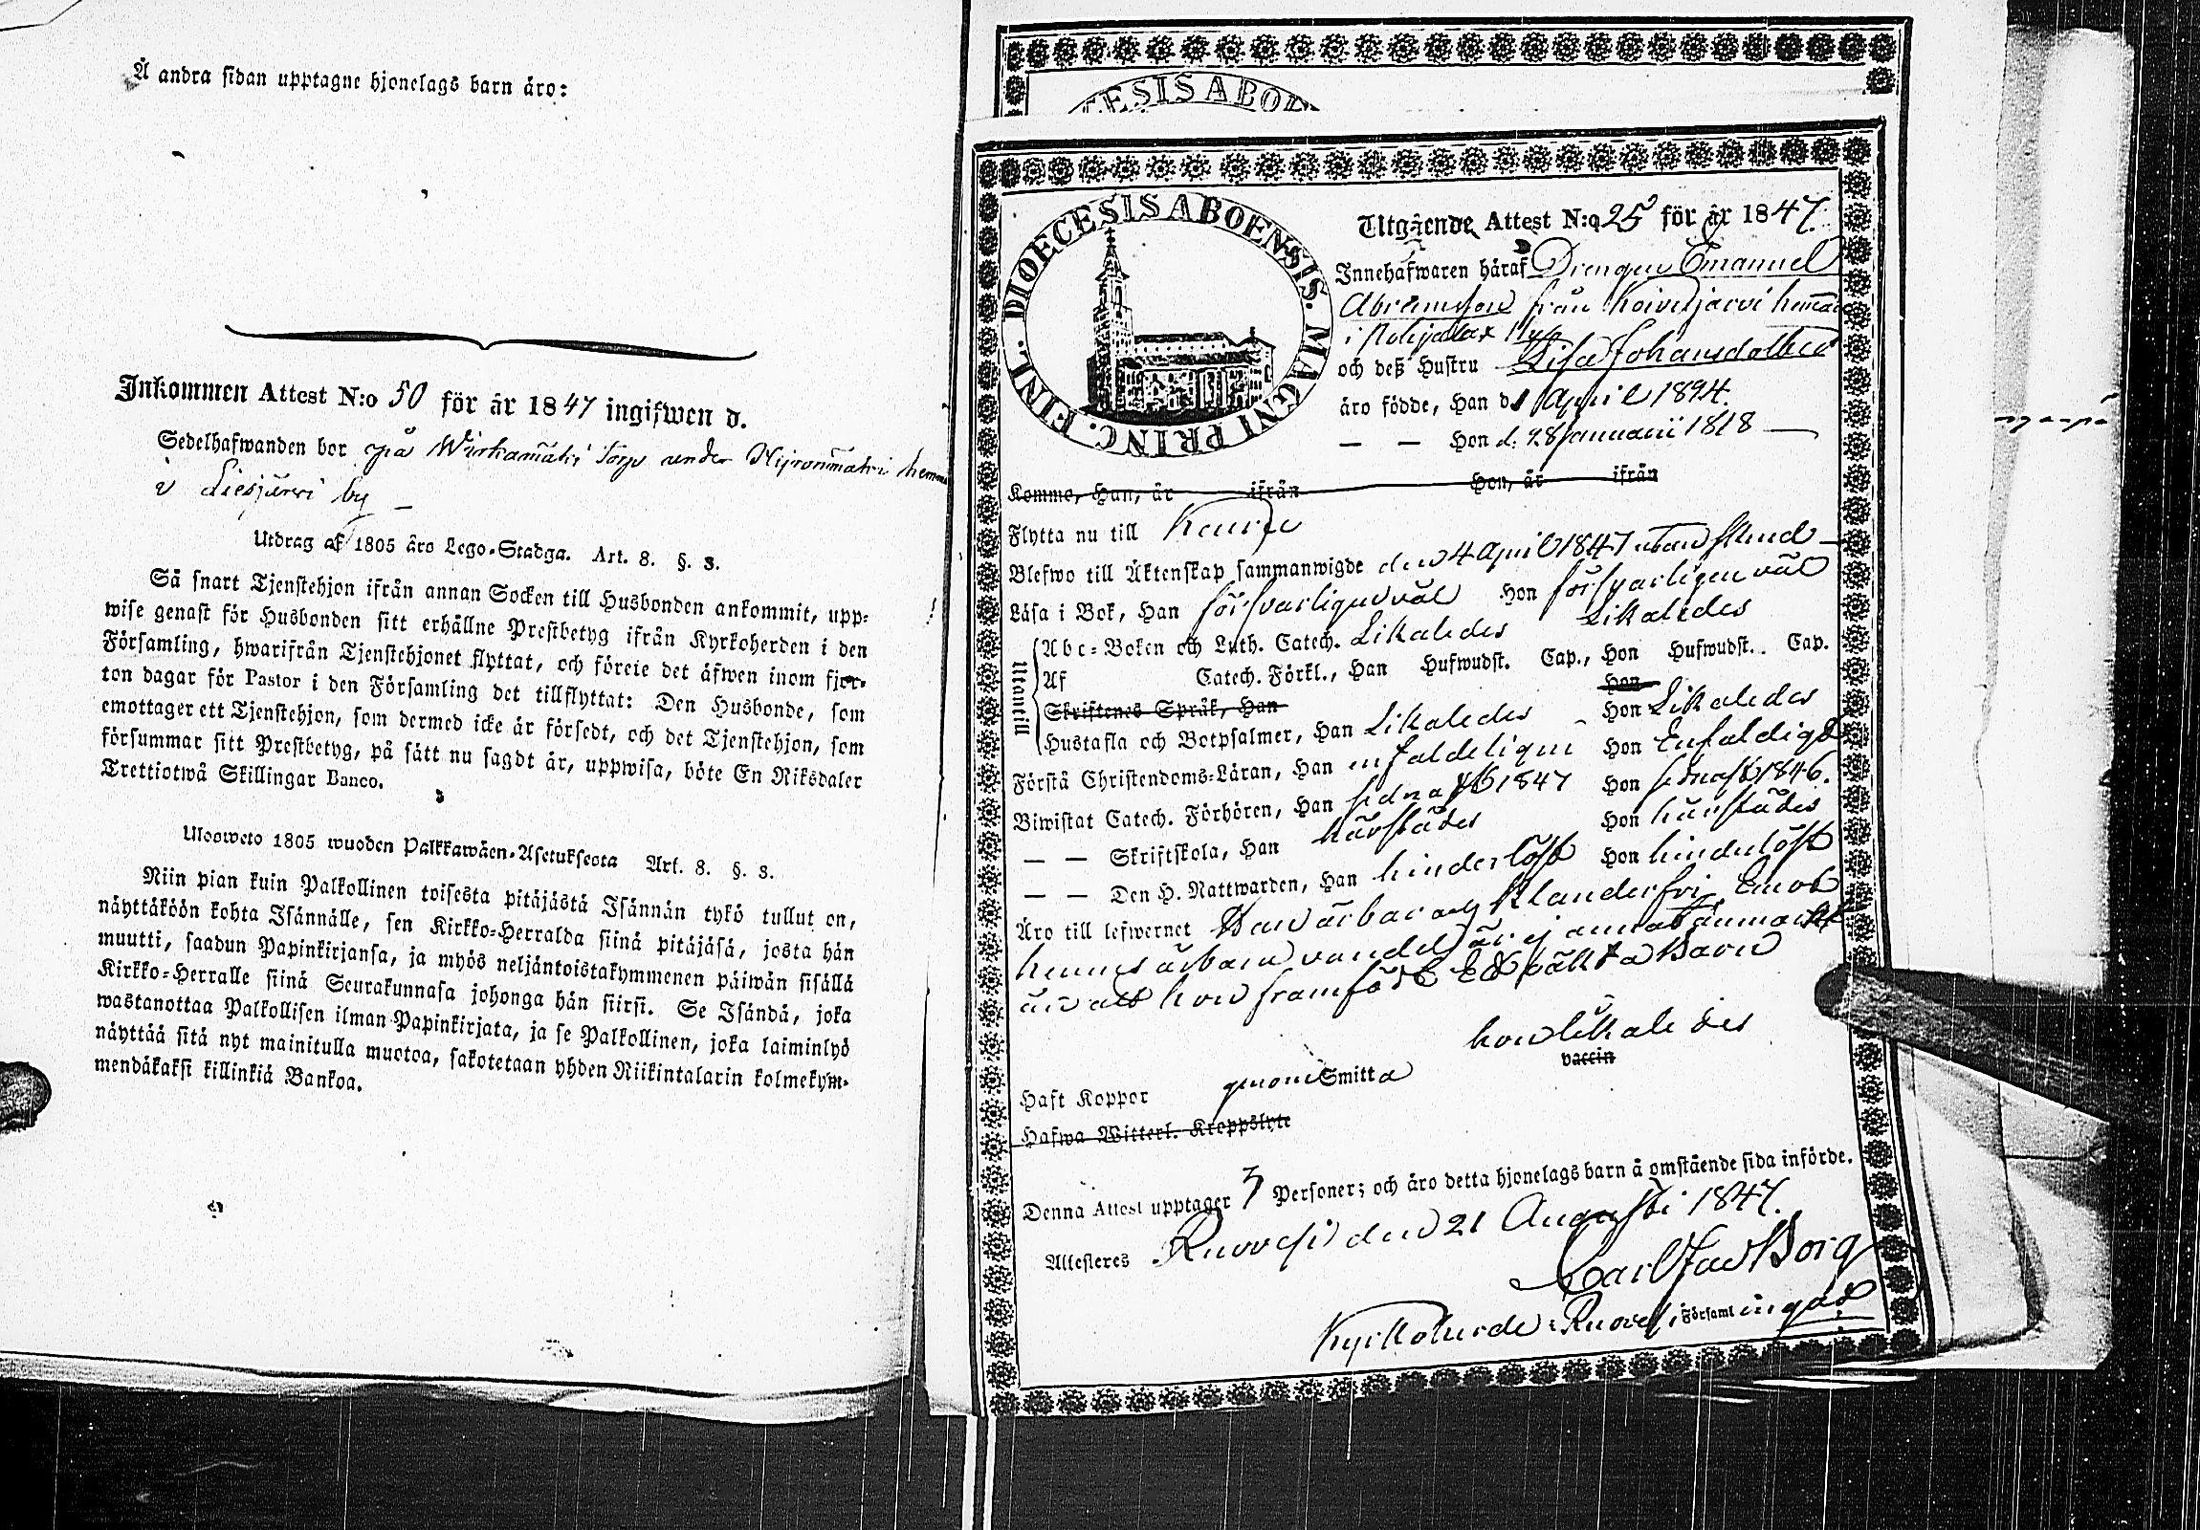 Å andra sidan upptagne hjonelags barn äro:
Inkommen Attest N:o 50 för år 1847 ingifwen d.
Sedelhafwanden bor på torp under
i Liesjärvi by
Utdrag af 1805 års Lego-Stadga. Art. 8. §. 3.
Så snart Tjenstehjon ifrån annan Socken till Husbonden ankommit, upp-
wise genast för Husbonden sitt erhållne Prestbetyg ifrån Kyrkoherden i den
Församling, hwarifrån Tjenstehjonet flyttat, och föreie det äfwen inom fjor-
ton dagar för Pastor i den Församling det tillflyttat: Den Husbonde, som
emottager ett Tjenstehjon, som dermed icke är försedt, och det Tjenstehjon, som
försummar sitt Prestbetyg, på sätt nu sagdt är, uppwisa, böte En Riksdaler
Trettiotwå Skillingar Banco.
Ulosweto 1805 wuoden Palkkawäen-Asetuksesta Art. 8. §. 3.
Niin pian kuin Palkollinen toisesta pitäjästä Isännän tykö tullut on,
näyttäköön kohta Isännälle, sen Kirkko-Herralda siinä pitäjäsä, josta hän
muutti, saadun Papinkirjansa, ja myös neljäntoistakymmenen päiwän sisällä
Kirkko-Herralle siinä Seurakunnasa johonga hän siirsi. Se Isändä, joka
wastanottaa Palkollisen ilman Papinkirjata, ja se Palkollinen, joka laiminlyö
näyttää sitä nyt mainitulla muotoa, sakotetaan yhden Riikintalarin kolmekym-
mendäkaksi killinkiä Bankoa.
ESIS ABOE
DIOECESIS ABOENSIS. MAGNI PRINC. FINL.
Utgående Attest N:o 25 för år 1847.
Innehafwaren häraf Drengen Emanuel
Abramsson från Koiverjärvi hemman
i by
och deß Hustru Lisa Johansdotter
äro födde, Han d. 1 April 1894.
— — Hon d. 28 Januarii 1818 —
Komme, Han, år ifrån Hon, år ifrån
Flytta nu till Keuru
Blefwo till Äktenskap sammanwigde den 4 April 1847 utan
Läsa i Bok, Han försvarligen väl Hon försvarligen väl
Utantill
Abc-Boken och Luth. Catech. Likaledes Likaledes
Af Catech. Förkl., Han Hufwudst. Cap., Hon Hufwudst. Cap.
Skriftenes Språk, Han Hon
Hustafla och Botpsalmer, Han Likaledes Hon Likaledes
Förstå Christendoms-Läran, Han enfaldeligen Hon Enfaldigt
Biwistat Catech. Förhören, Han sednast 1847 Hon sednast 1846.
— — Skriftskola, Han härstädes Hon härstädes
— — Den H. Nattwarden, Han hinderlöst Hon hinderlöst
Äro till lefwernet Han ärbar och klanderfri, Emot
hennes ärbara vandel är ej annat anmärkt
än att hon framfödt Ett oäkta Barn
hon likaledes
Haft Koppor genom Smitta vaccin
Hafwa Witterl. Kroppslyte
Denna Attest upptager 3 Personer; och äro detta hjonelags barn å omstående sida införde.
Attesteras Ruovesi den 21 Augusti 1847.
Carl Jac Borg
Kyrkoherde i Ruovesi Församlingar